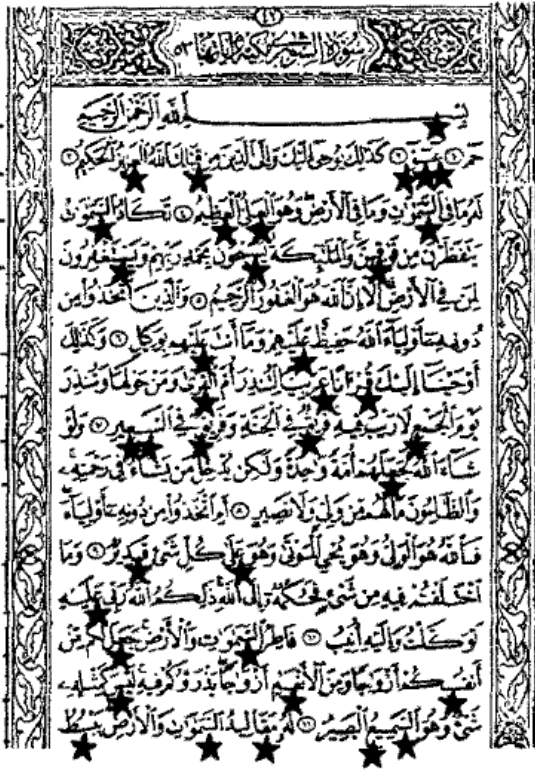 ٤٢
سورة الشورى مكية وآياتها ٥٣
بسم الله الرحمن الرحيم
حم ١ عسق ٢ كذلك يوحي إليك وإلى الذين من قبلك الله العزيز الحكيم ٣
له ما في السموت وما في الأرض وهو العلي العظيم ٤ تكاد السموت
يتفطرن من فوقهن والملئكة يسبحون بحمد ربهم ويستغفرون
لمن في الأرض ألا إن الله هو الغفور الرحيم ٥ والذين اتخذوا من
دونه أولياء الله حفيظ عليهم وما أنت عليهم بوكيل ٦ وكذلك
أوحينا إليك قرءانا عربيا لتنذر أم القرى ومن حولها وتنذر
يوم الجمع لا ريب فيه فريق في الجنة وفريق في السعير ٧ ولو
شاء الله لجعلهم أمة وحدة ولكن يدخل من يشاء في رحمته
والظلمون ما لهم من ولي ولا نصير ٨ أم اتخذوا من دونه أولياء
فالله هو الولي وهو يحي الموتى وهو على كل شيء قدير ٩ وما
اختلفتم فيه من شيء فحكمه إلى الله ذلكم الله ربي عليه
توكلت وإليه أنيب ١٠ فاطر السموت والأرض جعل لكم من
أنفسكم أزوجا ومن الأنعم أزوجا يذرؤكم فيه ليس كمثله
شيء وهو السميع البصير ١١ له مقاليد السموت والأرض يبسط